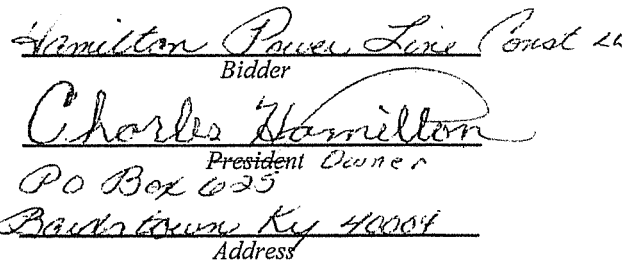 Hamilton Power Line Const
Bidder
Charles Hamilton
President Owner
PO Box 625
Bardstown Ky 40004
Address